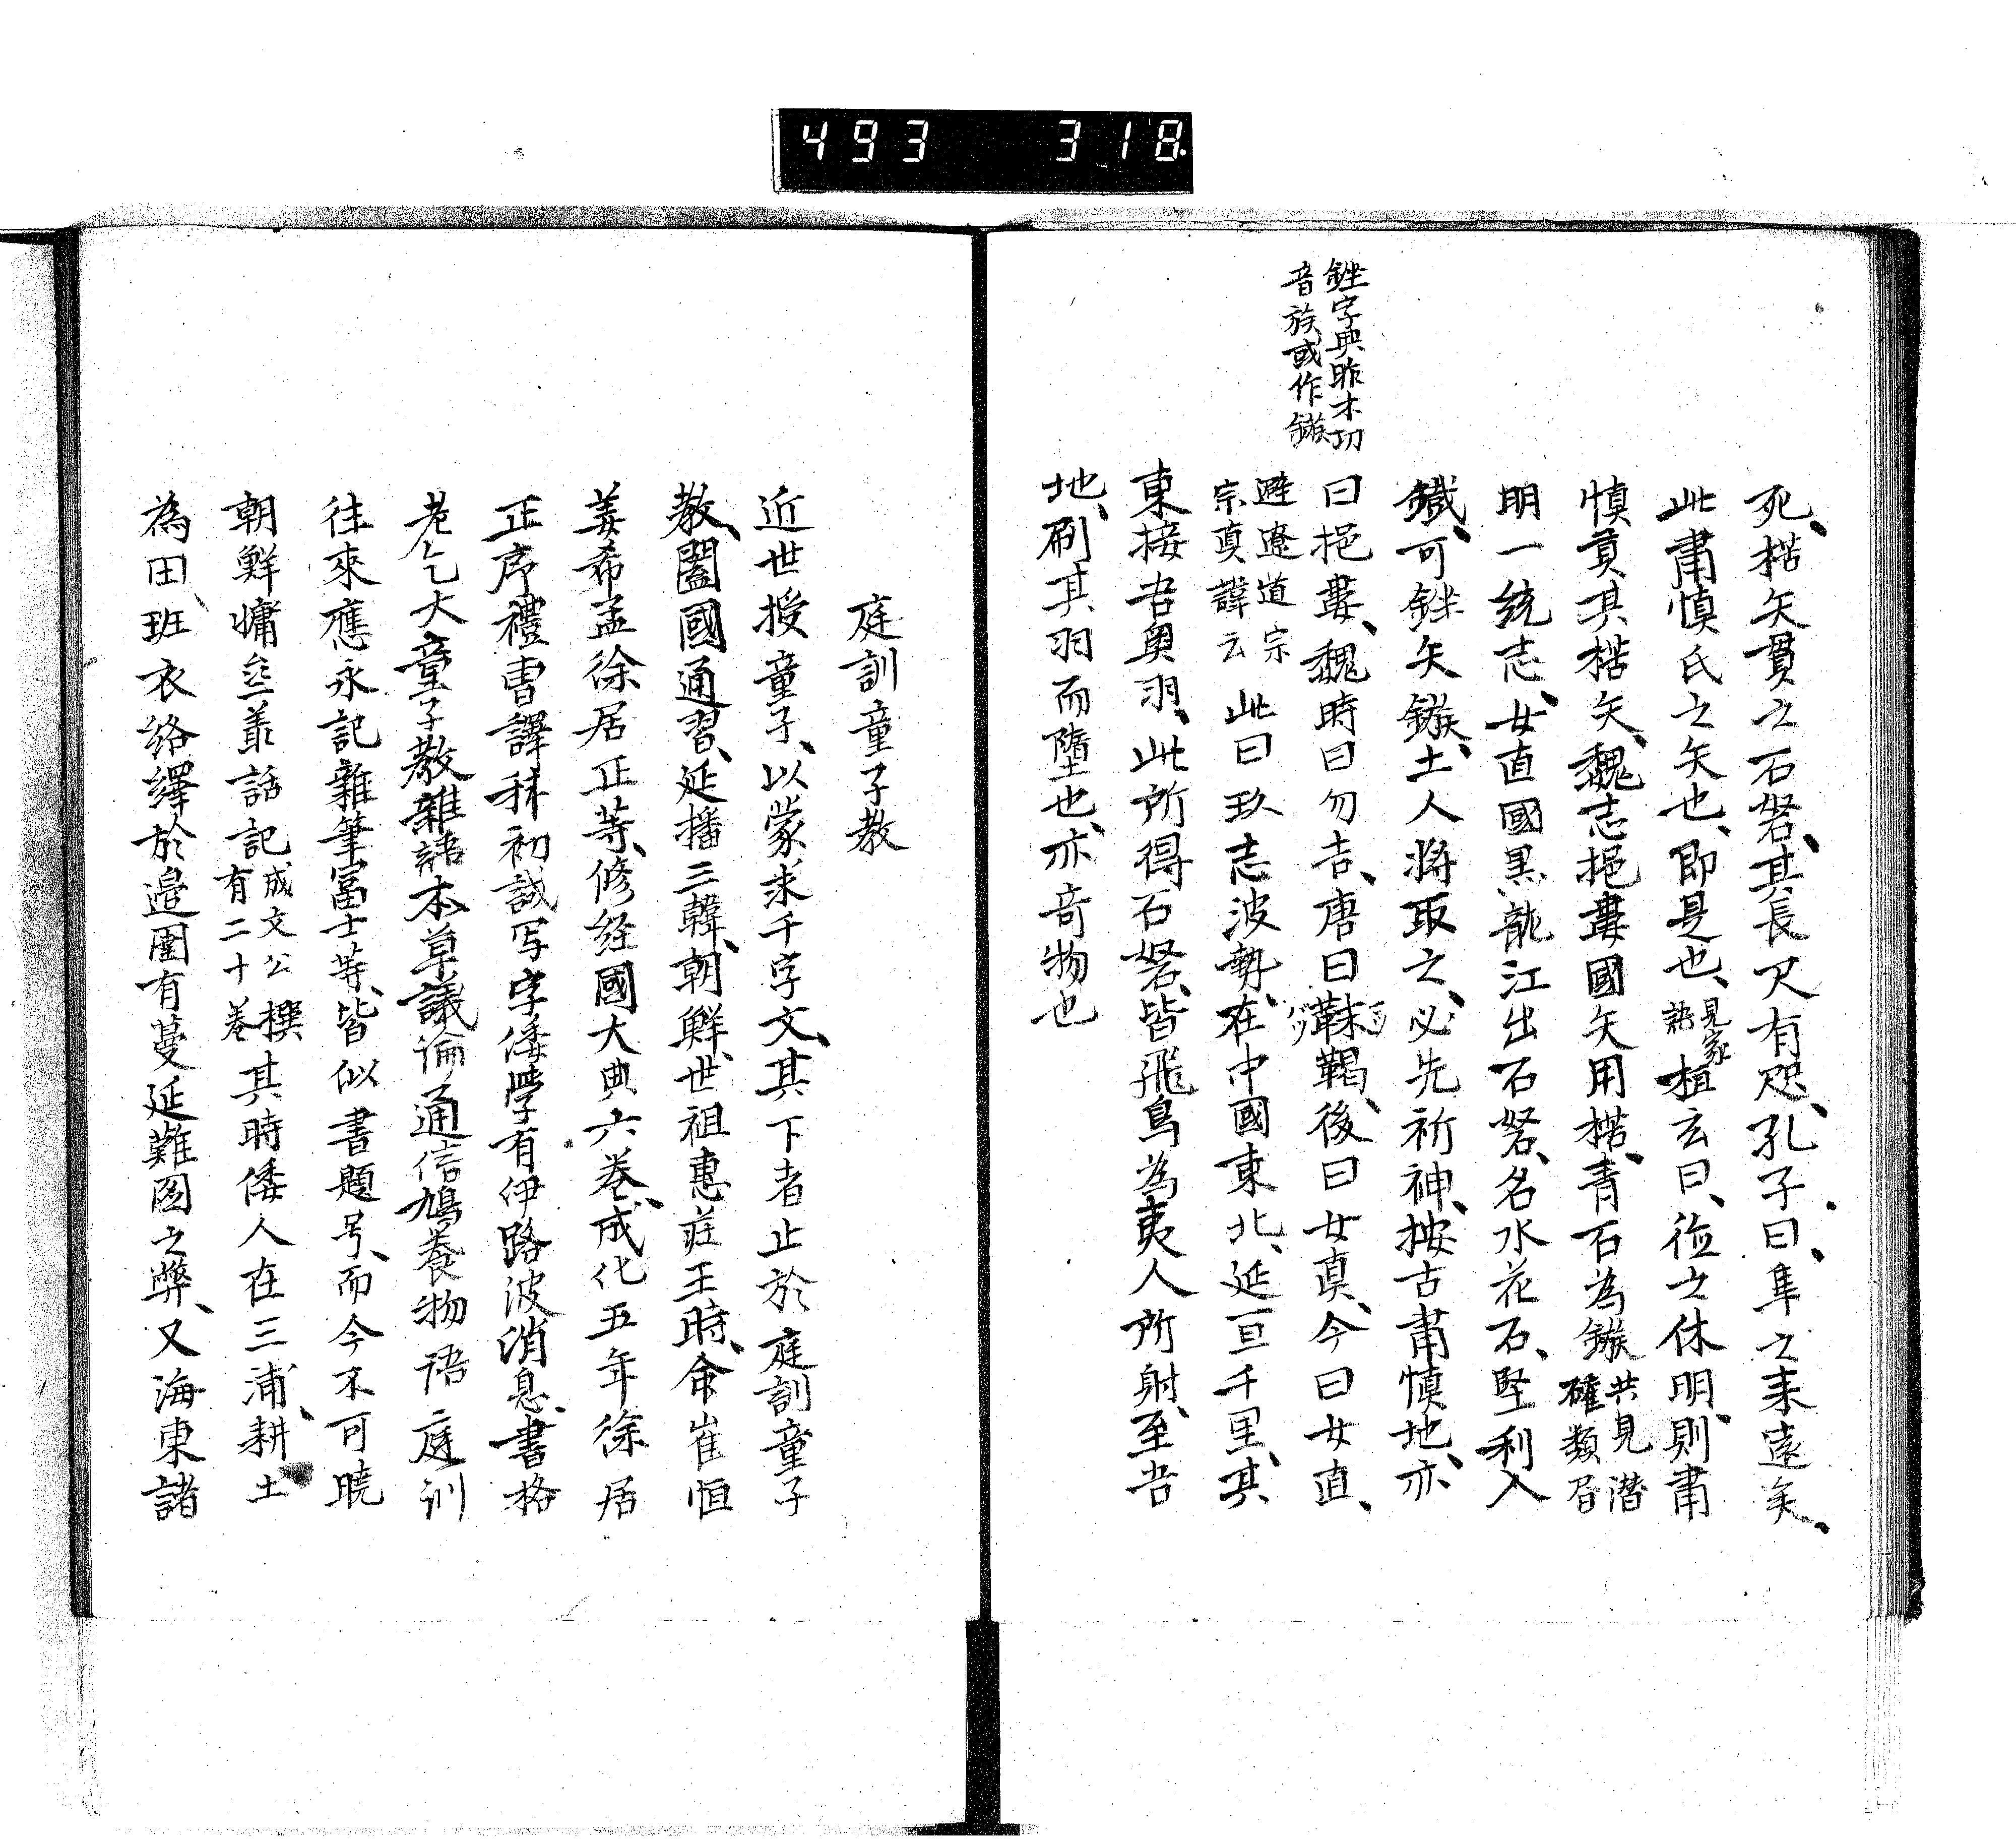 493 318
銼字典昨木切
音族或作鏃
死、楛矢貫之石砮、其長尺有咫、孔子曰、隼之来遠矣、
此肅慎氏之矢也、即是也、見家語 植玄曰、徳之休明、則肅
慎貢其楛矢、魏志挹婁國矢用楛、青石為鏃 共見潜確類居
明一統志、女直國黒龍江出石砮、名水花石、堅利入
鐵、可銼矢鏃、土人将取之、必先祈神、按古肅慎地、亦
曰挹婁、魏時曰勿吉、唐曰靺鞨、後曰女真、今曰女直、
避遼道宗宗真諱云 此曰玖志波勢、在中國東北、延亘千里、其
東接吾奥羽、此所得石砮、皆飛鳥為夷人所射、至吾
地、刷其羽而墮也、亦奇物也
庭訓童子教
近世授童子、以蒙求千字文、其下者止於庭訓童子
教、闔國通習、延播三韓、朝鮮世祖惠莊王時、命崔恒
姜希孟徐居正等、修経國大典六巻、成化五年徐居
正序禮曹譯科初試写字倭學有伊路波消息、書格
老乞大童子教雜語本草議論通信鳩養物語庭訓
往來應永記雜筆富士等、皆似書題号、而今不可曉
朝鮮慵齋叢話記 成文公撰有二十巻 其時倭人在三浦、耕土
為田、班衣絡繹於邉圉有蔓延難図之弊、又海東諸